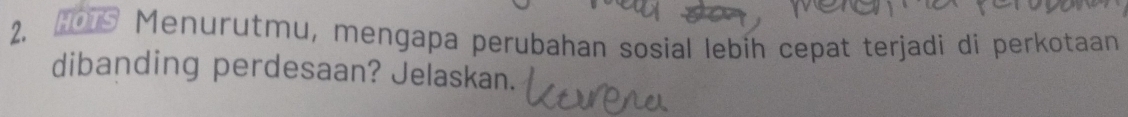 2. HOTS Menurutmu, mengapa perubahan sosial lebih cepat terjadi di perkotaan
dibanding perdesaan? Jelaskan. karena